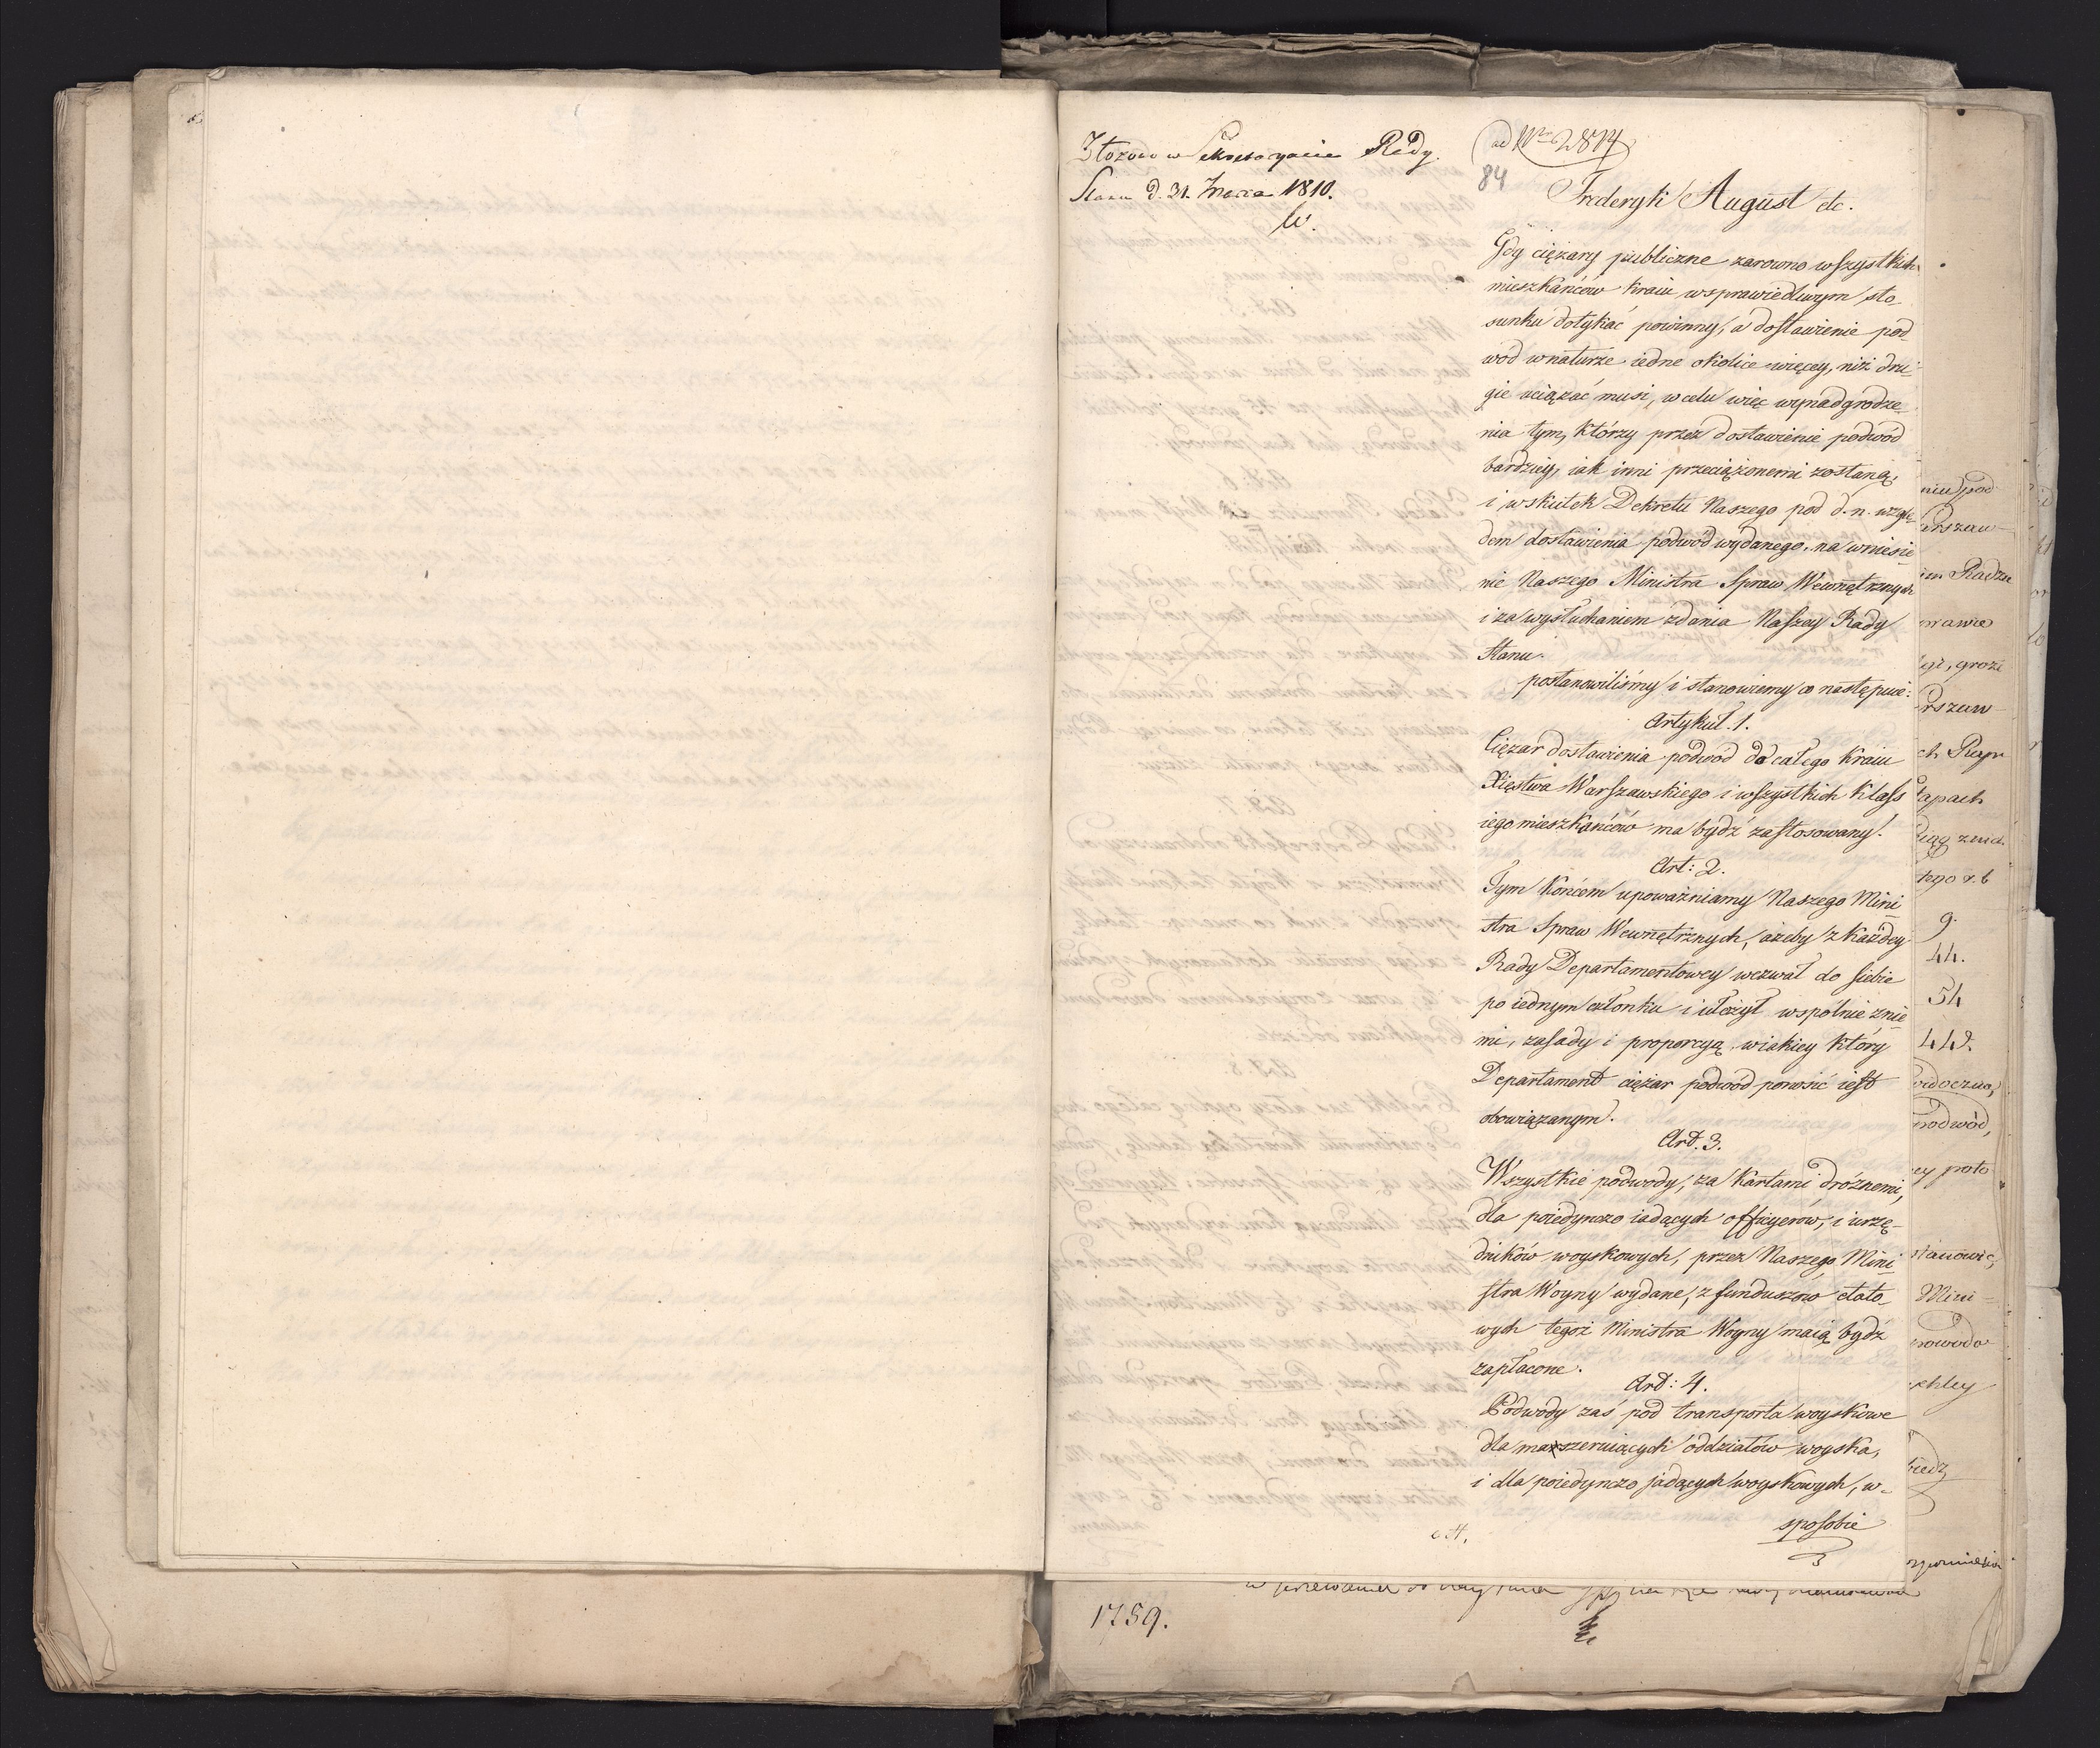 Złożono w Sekretaryacie Rady
Stanu d. 31. Marca 1810.
ad Nr 2814
84
Fryderyk August etc.
Gdy ciężary publiczne zarowno wszystkich
mieszkańców kraiu w sprawiedliwym sto-
sunku dotykać powinny, a dostawienie pod-
wód w naturze iedne okolice więcey, niż dru-
gie uciążać musi, w celu więc wynadgrodze-
nia tym, którzy przez dostawienie podwód
bardziey, iak inni przeciążonemi zostaną,
i w skutek Dekretu Naszego pod d. n. wzglę-
dem dostawienia podwód wydanego, na wniesie-
nie Naszego Ministra Spraw Wewnętrznych
i za wysłuchaniem zdania Naszey Rady
Stanu.
postanowiliśmy i stanowiemy co następuie:
Artykuł. 1.
Ciężar dostawienia podwód do całego kraiu
Xięstwa Warszawskiego i wszystkich klass
iego mieszkańców ma bydź zastosowany.
Art: 2.
Tym końcem upoważniamy Naszego Mini-
stra Spraw Wewnętrznych, ażeby z każdey
Rady Departamentowey wezwał do siebie
po iednym członku i ułożył wspólnie z nie-
mi, zasady i proporcyą, w iakiey który
Departament ciężar podwód ponosić iest
obowiązanym.
Art. 3.
Wszystkie podwody, za kartami dróżnemi,
dla poiedynczo iadących officyerow, i urzę-
dników woyskowych, przez Naszego Mini-
stra Woyny wydane, z funduszow etato-
wych tegoż Ministra Woyny maią bydź
zapłacone.
Art: 4.
Podwody zaś pod transporta woyskowe
dla maszeruiących oddziałów woyska,
i dla poiedynczo jadących woyskowych, w-
sposobie
1759.